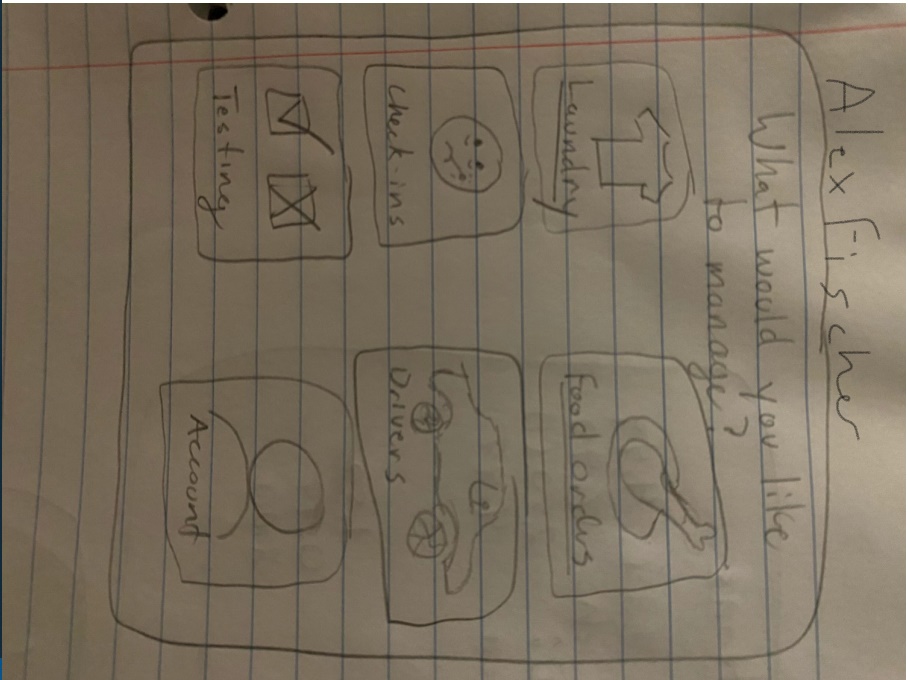 Alex Fischer
What would you like
to manage?
Laundry
Food orders
Check-ins
Drivers
Testing
Account